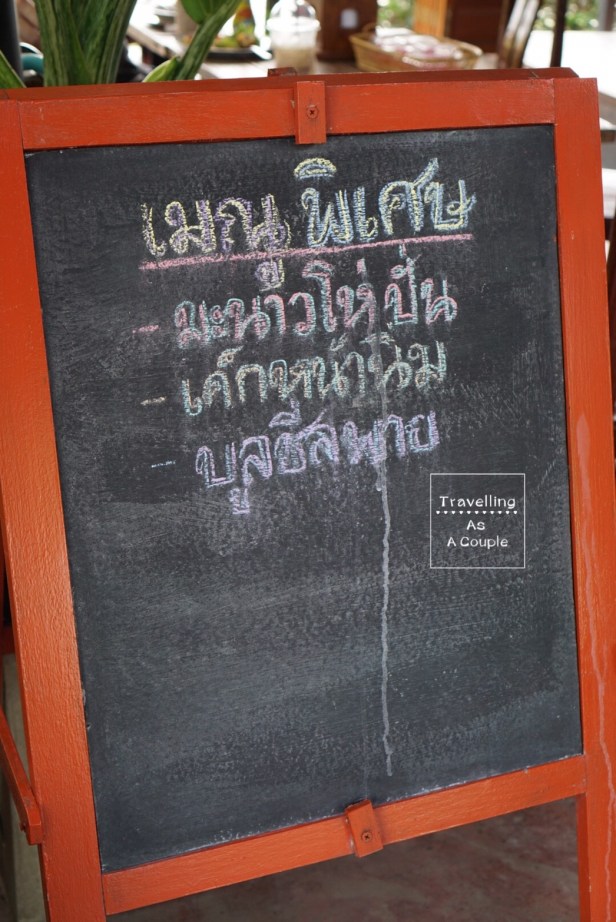 เมนูพิเศษ
- มะนาวโห่ปั่น
- เค้กหน้านิ่ม
- บลูชีสพาย
Travelling
As
A Couple